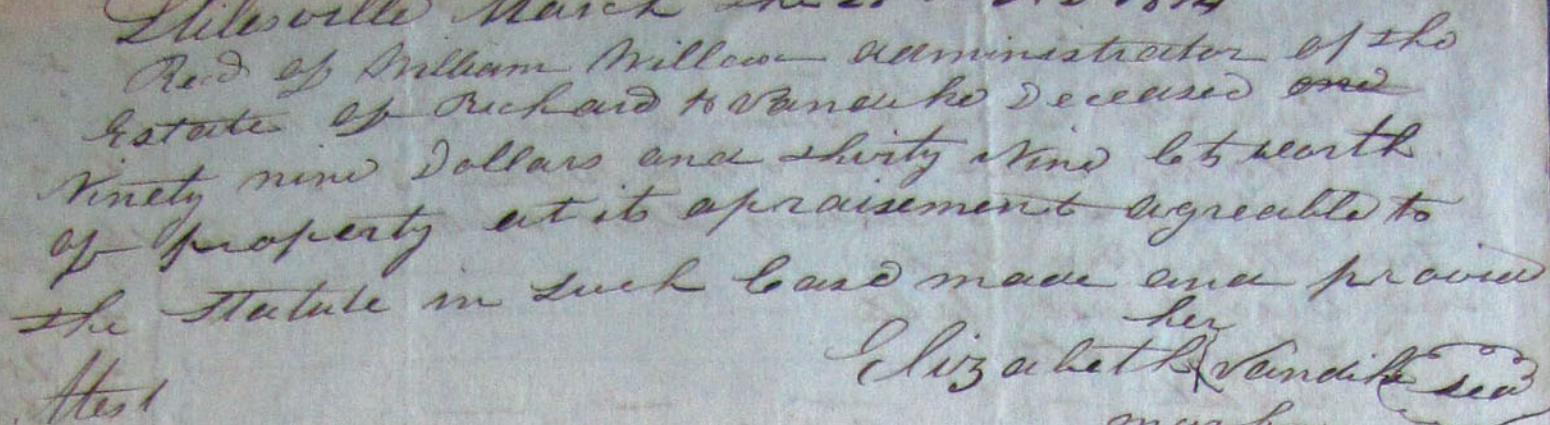 Stilesville March the
Recd of William Millown administrator of the
Estate of Richard to Vandike Deceased one
Ninety nine Dollars and thirty Nine Cts worth
of property at its apraisement agreable to
the Statute in such Case made and provid
her
Elizabeth Vandike seal
Atest
mark